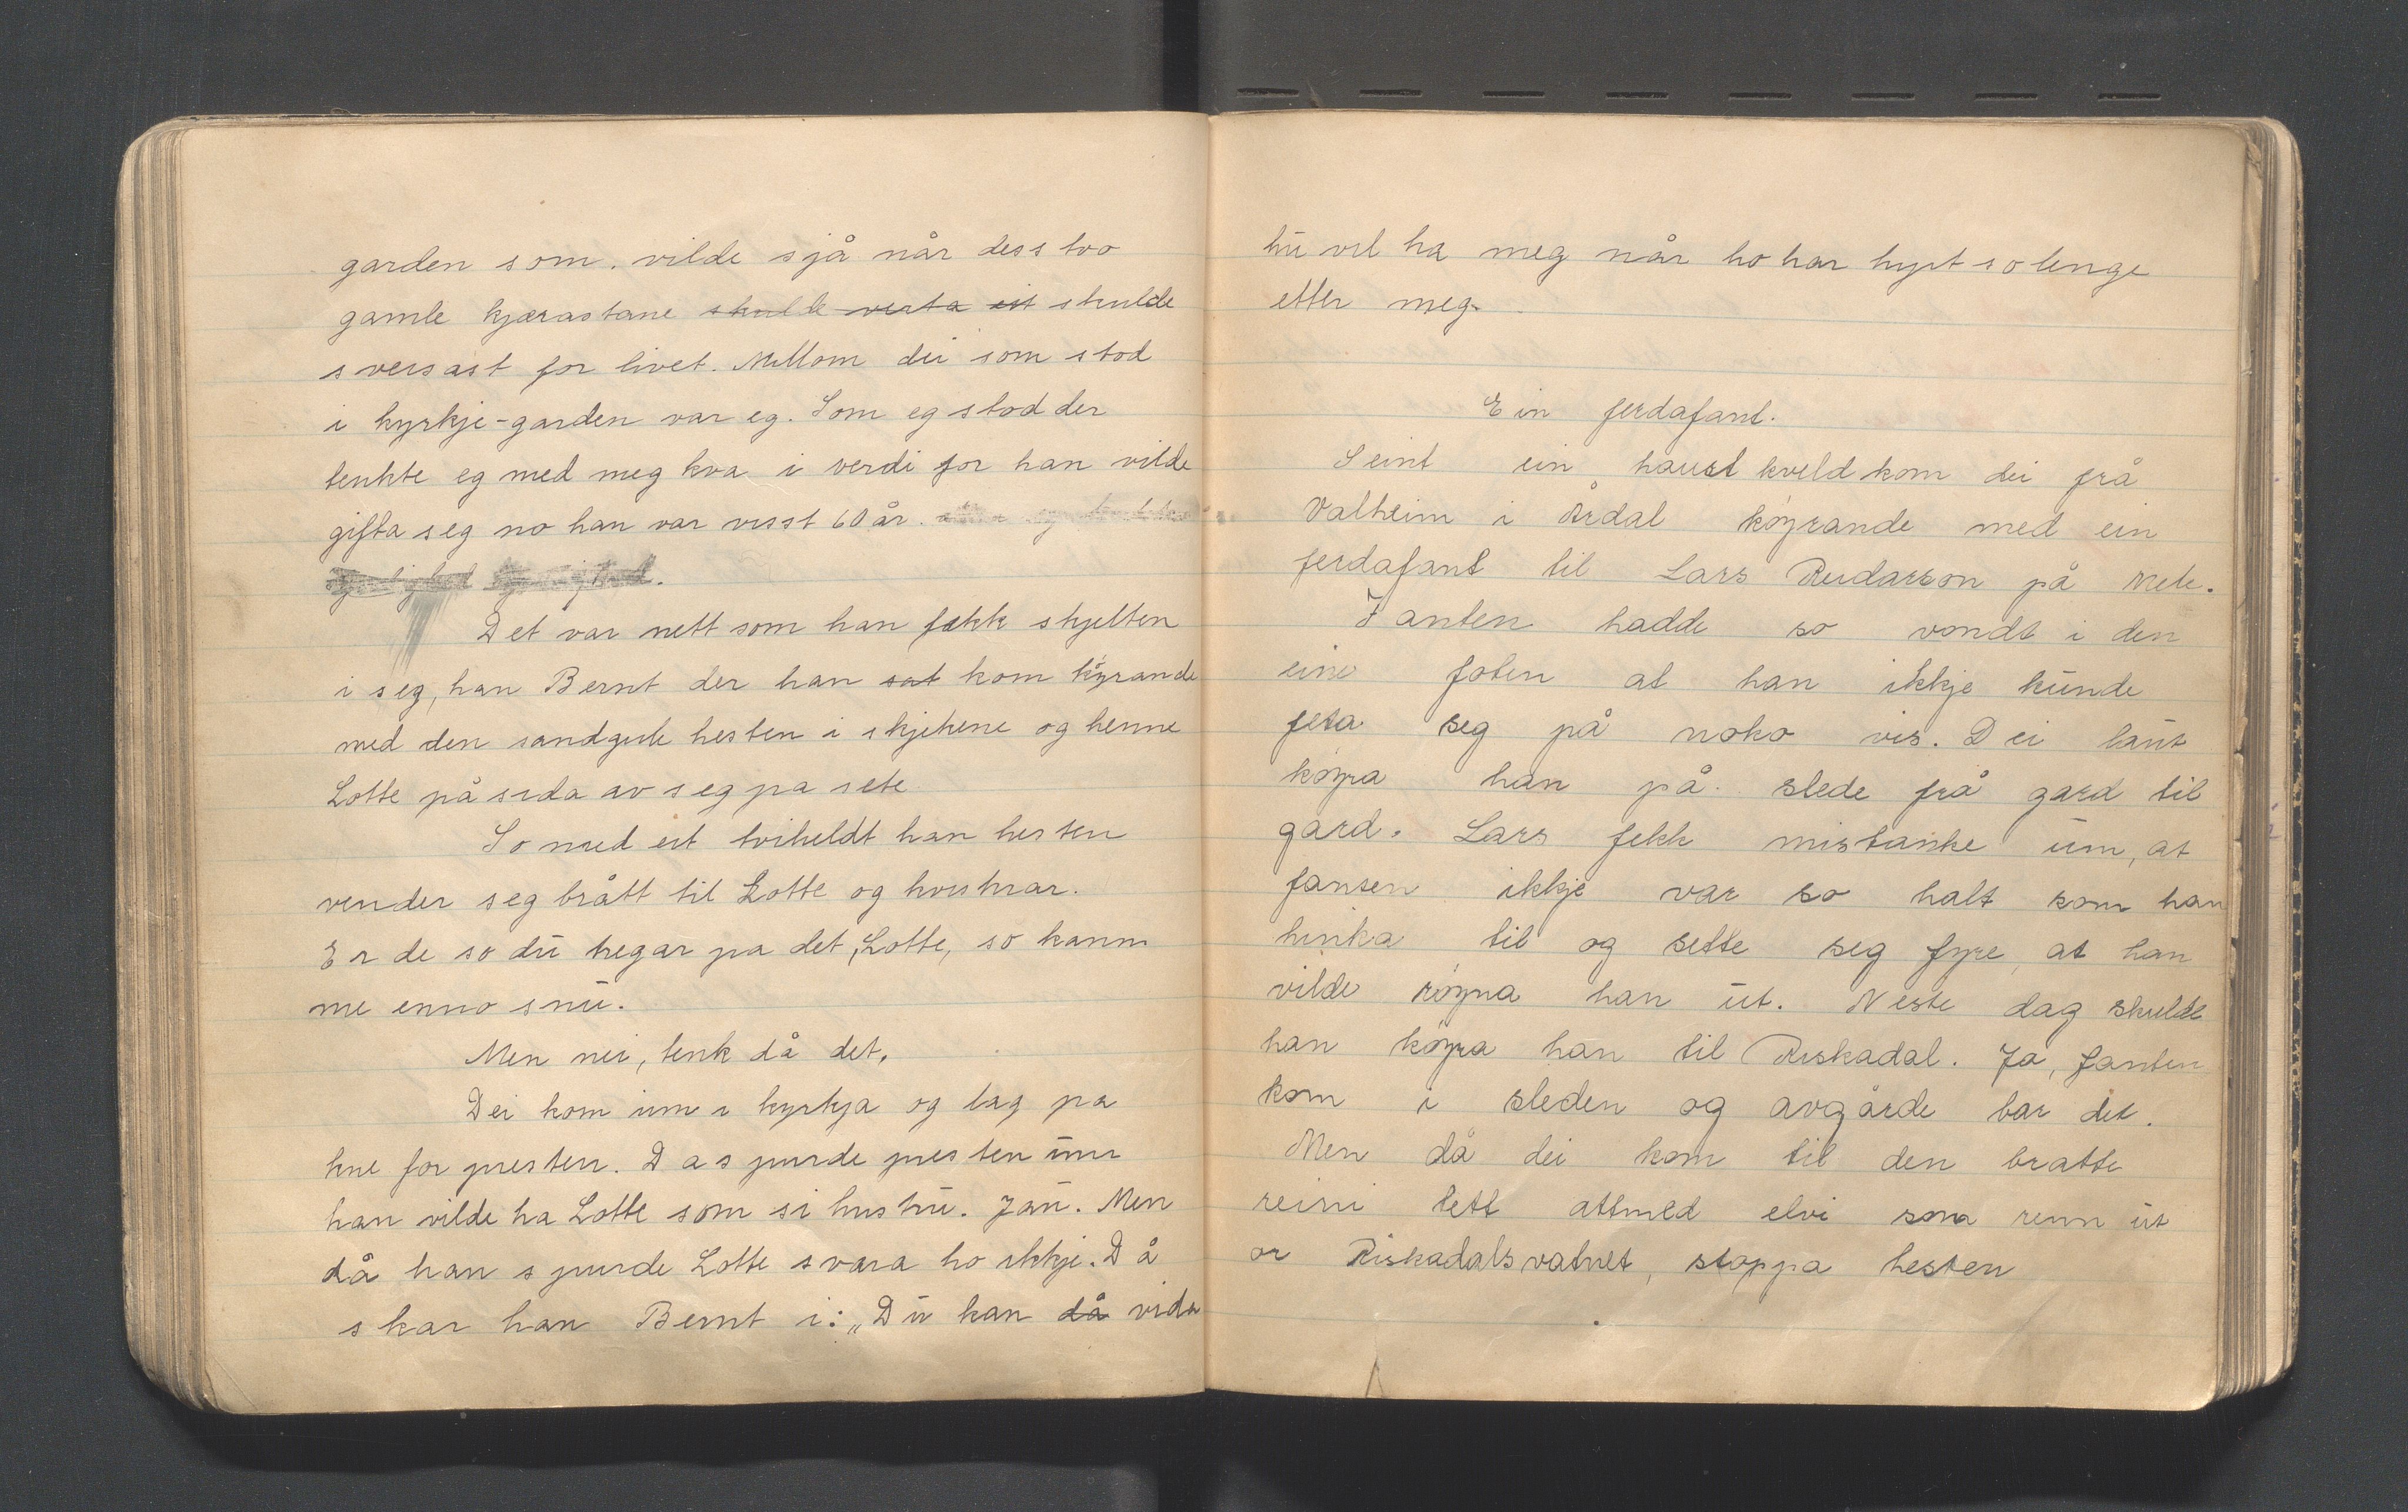 garden som. vilde sjå når dess tvo
gamle kjærastane skulle verta eit skulde
sversast for livet. Millom dei som stod
i kyrkje-garden var eg. Som eg stod der
tenkte eg med meg kva i verdi for han vilde
gifta seg no han var visst 60 år.
Det var nett som han fekk skjelten
i seg, han Bernt der han sat kom kyrande
med den sandgule hesten i skjekene og henne
Lotte på sida av seg pa sete
So med eit tviheldt han hesten
vender seg brått til Lotte og kviskrar.
Er de so du tregar pa det, Lotte, so kann
me enno snu.
Men nei, tenk då det.
Dei kom um i kyrkja og lag pa
kne for presten. Da spurde presten um
han vilde ha Lotte som si hustru. Jau. Men
då han spurde Lotte svara ho ikkje. Då
skar han Bernt i: „Du kan då vida
hu vil ha meg når ho har hyrt so lenge
etter meg.
Ein ferdafant.
Seint ein haust kveld kom dei frå
Valheim i Årdal köyrande med ein
ferdafant til Lars Reidarson på Mele.
Fanten hadde so vondt i den
eine foten at han ikkje kunde
feta seg på noko vis. Dei laut
köyra han på slede frå gard til
gard. Lars fekk mistanke um, at
fanten ikkje var so halt som han
hinka til og sette seg fyre, at han
vilde röyna han ut. Neste dag skulde
han köyra han til Riskadal. Ja, fanten
kom i sleden og avgårde bar det.
Men då dei kom til den bratte
reini tett attmed elvi som renn ut
or Riskadalsvatnet, stoppa hesten